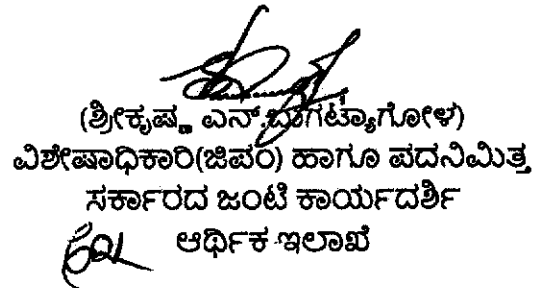 (ಶ್ರೀಕೃಷ್ಣ ಎನ್.ಬುಗಟ್ಯಾಗೋಳ)
ವಿಶೇಷಾಧಿಕಾರಿ(ಜಿಪಂ) ಹಾಗೂ ಪದನಿಮಿತ್ತ
ಸರ್ಕಾರದ ಜಂಟಿ ಕಾರ್ಯದರ್ಶಿ
ಆರ್ಥಿಕ ಇಲಾಖೆ